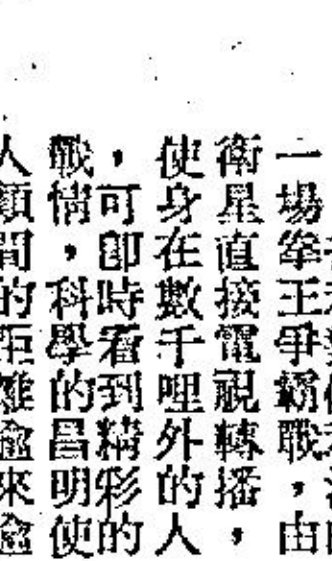 一場拳王爭霸戰，由
衛星直接電視轉播，
使身在數千哩外的人
，可即時看到精彩的
戰情，科學的昌明使
人類間的距離愈來愈